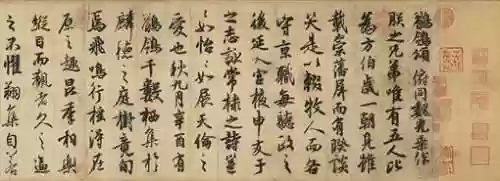 鶺鴒頌 俯同魏光乘作
朕之兄弟唯有五人比
為方伯歲一朝見雖
載崇藩屏而有睽談
笑是以輟牧人而各
守京職每聽政之
後延入宮掖申友于
之志詠常棣之詩邕
〻如怡〻如展天倫之
愛也秋九月辛酉有
鶺鴒千數棲集於
麟德之庭樹竟旬
焉飛鳴行搖得在
原之趣昆季相樂
縱目而觀者久之逼
之不懼翔集自若